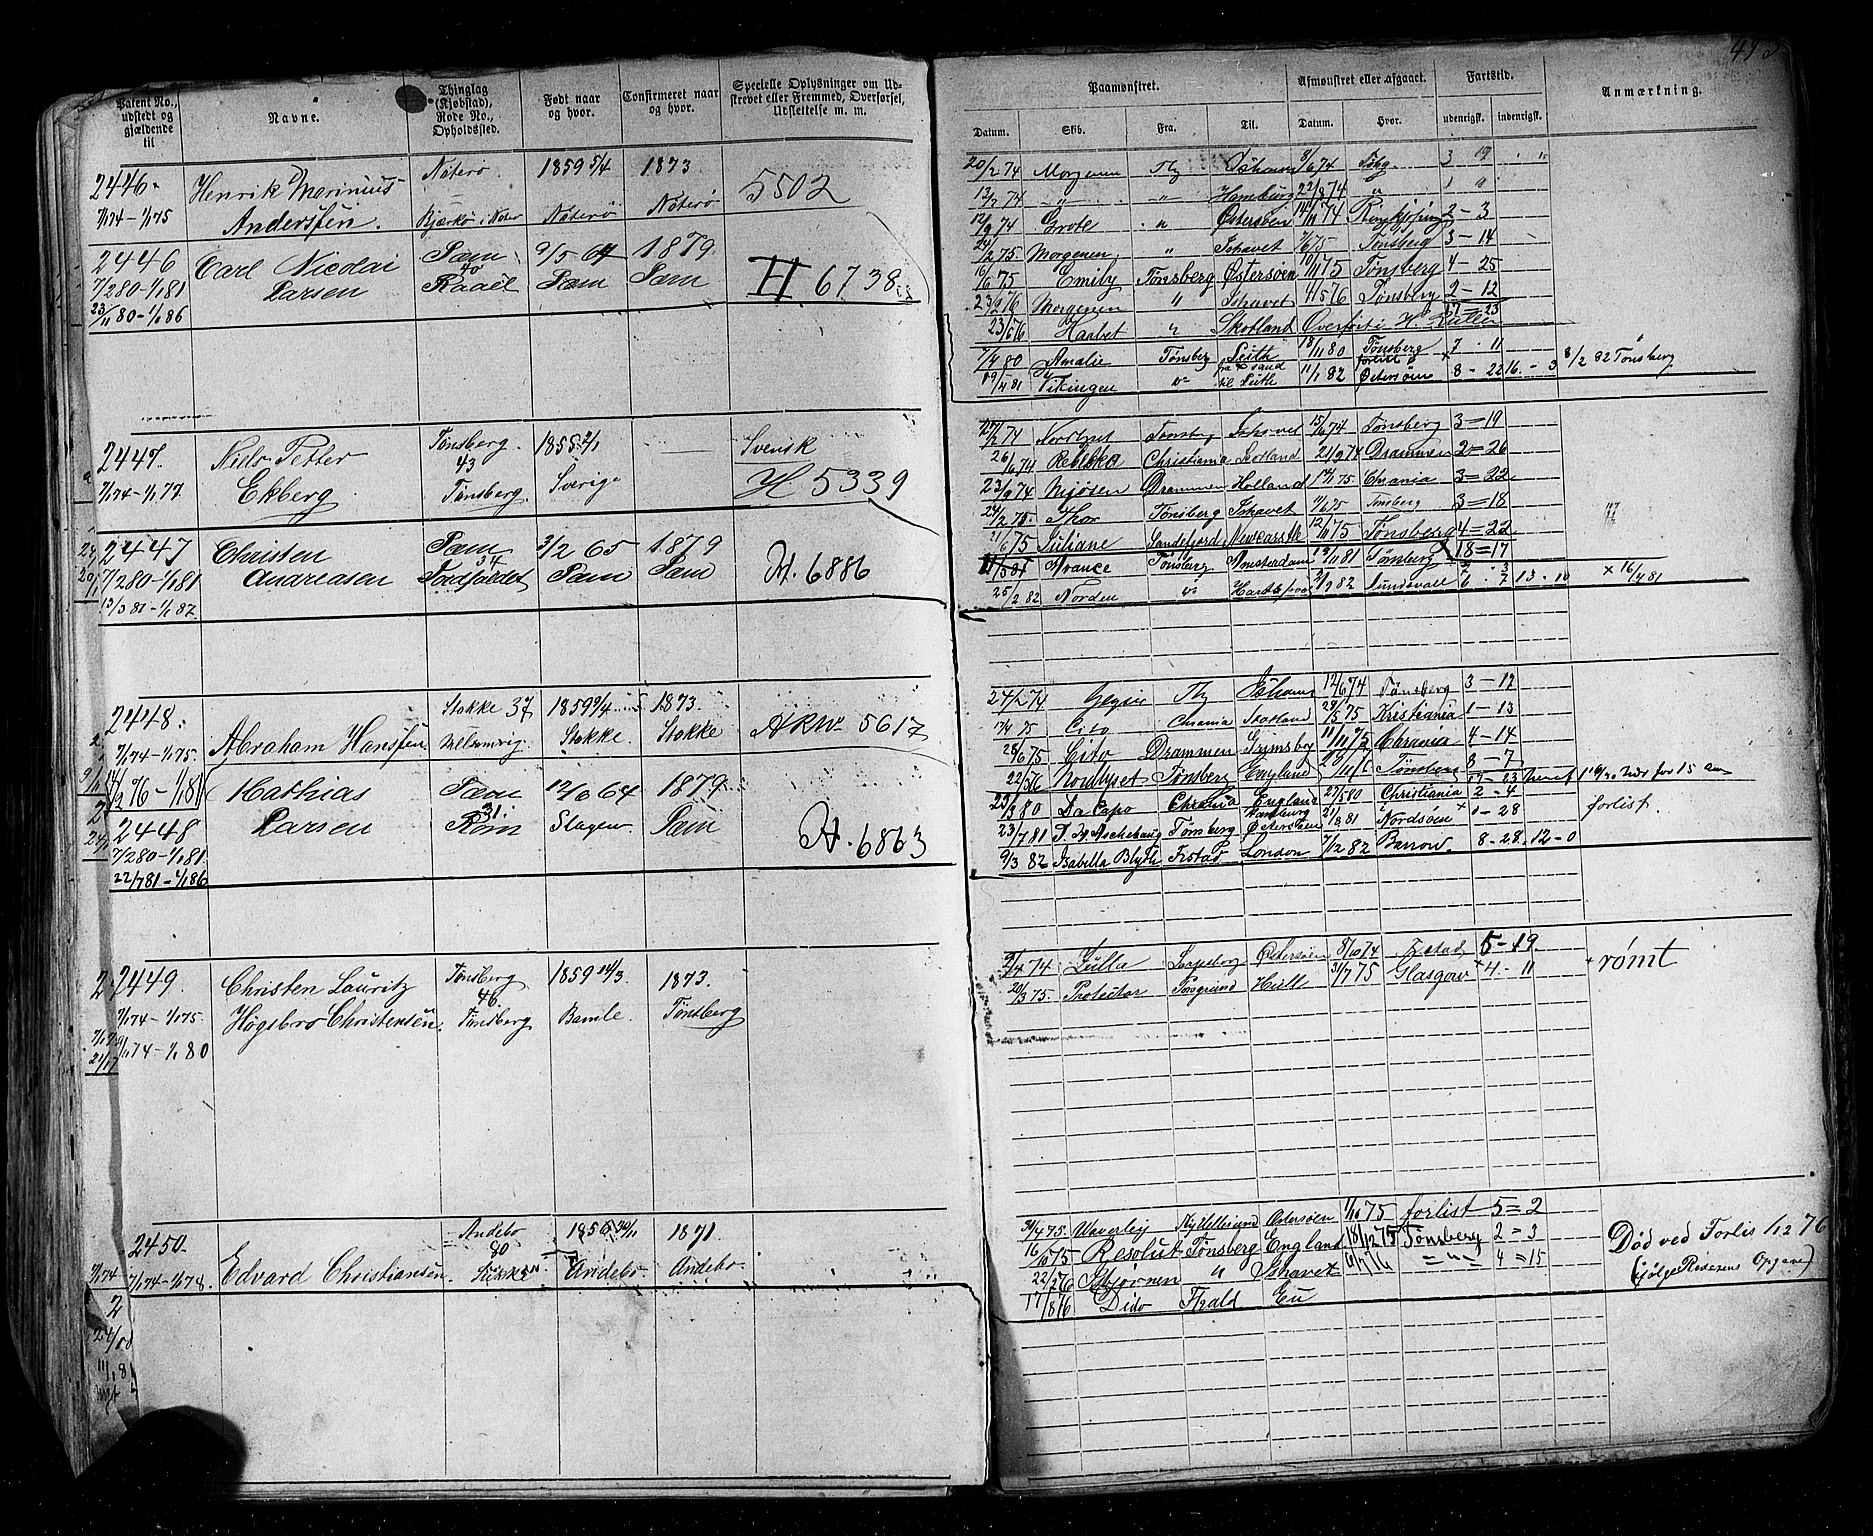 Patent No., udstedt og gjældende til
Navne.
Thinglag (Kjøbstad), Rode No., Opholdssted.
Født naar og hvor.
Confirmeret naar og hvor.
Specielle Oplysninger om Udskrevet eller Fremmed, Overførsel, Udslettelse m. m.
2446. Henrik Marinius Nøterø 1859 5/4 1873 5502
1/1 74 – 1/1 75 Anderssen. Bjerkø i Nøterø Nøterø Nøterø
2446 Carl Nicolai Sæm 9/5 64 1879
7/2 80 – 1/1 81 Larsen 40 Raael Sæm Sæm H 6738
23/11 80 – 1/1 86
2447. Niels Petter Tønsberg. 1855 2/1 Svensk
43
1/1 74 – 1/1 77 Ekberg Tønsberg. Sverige H 5339
2447 Christen Sæm 3/2 65 1879
34
7/2 80 – 1/1 81 Andreasen Sæm Sæm H. 6886
13/3 81 – 1/1 87
2448. Stokke 37 1859 9/4 1873
1/1 74 – 1/1 75. Abraham Hanssen Melsomvig. Stokke. Stokke 5617
14/2 76 – 1/1 81
Mathias Sæm 12/6 64 1879
31.
2448 Larsen Røm Slagen Sæm H. 6863
7/2 80 – 1/1 81
22/7 81 – 1/1 86
2449. Christen Lauritz Tønsberg 1859 14/3 1873.
46.
1/1 74 – 1/1 75. Høgsbro Christensen. Tønsberg Bamle. Tønsberg
1/1 74 – 1/1 80
2450. Andebo 1856 30/11 1871
80
1/1 74 – 1/1 78. Edvard Christiansen. Andebo. Andebo.
Paamønstret.
Afmønstret eller afgaaet.
Fartstid.
Anmærkning.
Datum. Skib. Fra. Til. Datum. Hvor. udenrigsk. indenrigsk.
20/2 74 Morgenen Tbg Ishavet 8/6 74 Tsbg 3 19
13/7 74 – " – – " – Hamburg 22/8 74 "
12/9 74 Grote " Østersøen 14/11 74 Ringkjøping 2 – 3
24/2 75. Morgenen " Ishavet 7/6 75 Tønsberg 3 – 14
16/6 75 Emily Tønsberg Østersøen 10/11 75 Tønsberg 4 – 25
23/2 76 Morgenen " Ishavet 4/5 76 Tønsberg 2 – 12
17 – 23
23/5 76 Haabet " Skotland Overført i H. Rullen
7/4 80 Amalie Tønsberg Leith 18/11 80 Tønsberg 7 . 11
19/4 81 Vikingen " til Leith 11/1 82 forlist Østersøen 8 – 22 16 – 3 8/2 82 Tønsberg
27/2 74 Nordlyset Tønsberg Ishavet 15/6 74 Tønsberg 3 = 19
26/6 74 Rebekka Christiania Skotland 21/9 74 Drammen 2 = 26
23/9 74 Mjøsen Drammen Holland 14/1 75 Chrania 3 = 22
24/2 75. Thor Tønsberg Ishavet 11/6 75 Tønsberg 3 = 18
21/6 75 Juliane Sandefjord Newcastle 12/11 75 Tønsberg 4 = 22
18 = 17
Avance Tønsberg Amsterdam Tønsberg × 16/4 81
25/2 82 Norden " Hartlepool 3/9 82 Sundsvall 6 . 7 13 – 10
24/2 74 Tbg Ishavet 12/6 74 Tønsberg 3 – 17
17/4 75 Cito Chrania Skotland 29/5 75 Kristiania 1 – 13
28/6 75 Cito Drammen Grimsby 11/11 75 Chrania 4 – 14
22/3 76 Nordlyset Tønsberg England Tønsberg 8 – 7
17 – 23
23/3 80 Da Capo Chrania England 27/5 80 Christiania 2 – 4
23/7 81 Tønsberg Østersøen 21/8 81 Nordsøen × 0 – 28 forlist.
9/3 82 Isabella Blyth Frstad London 7/2 82 Barrow. 8 – 28. 12 – 0
9/4 74 Julla Sarpsborg Østersøen 8/10 74 5 – 19.
20/3 75. Protector Porsgrund Hull 31/7 75 Glasgow × 4 – 11 × rømt
30/4 75. Waverley Østersøen 1/10 75 forlist 5 = 2
16/10 75 Resolut Tønsberg England 18/12 75 Tønsberg 2 = 3
22/2 76 Isbjørnen " Ishavet 9/7 76 = " = 4 = 15
17/8 76 Dido Eu
Død ved Forlis 1/12 76
(ifølge Rederens Opgave)